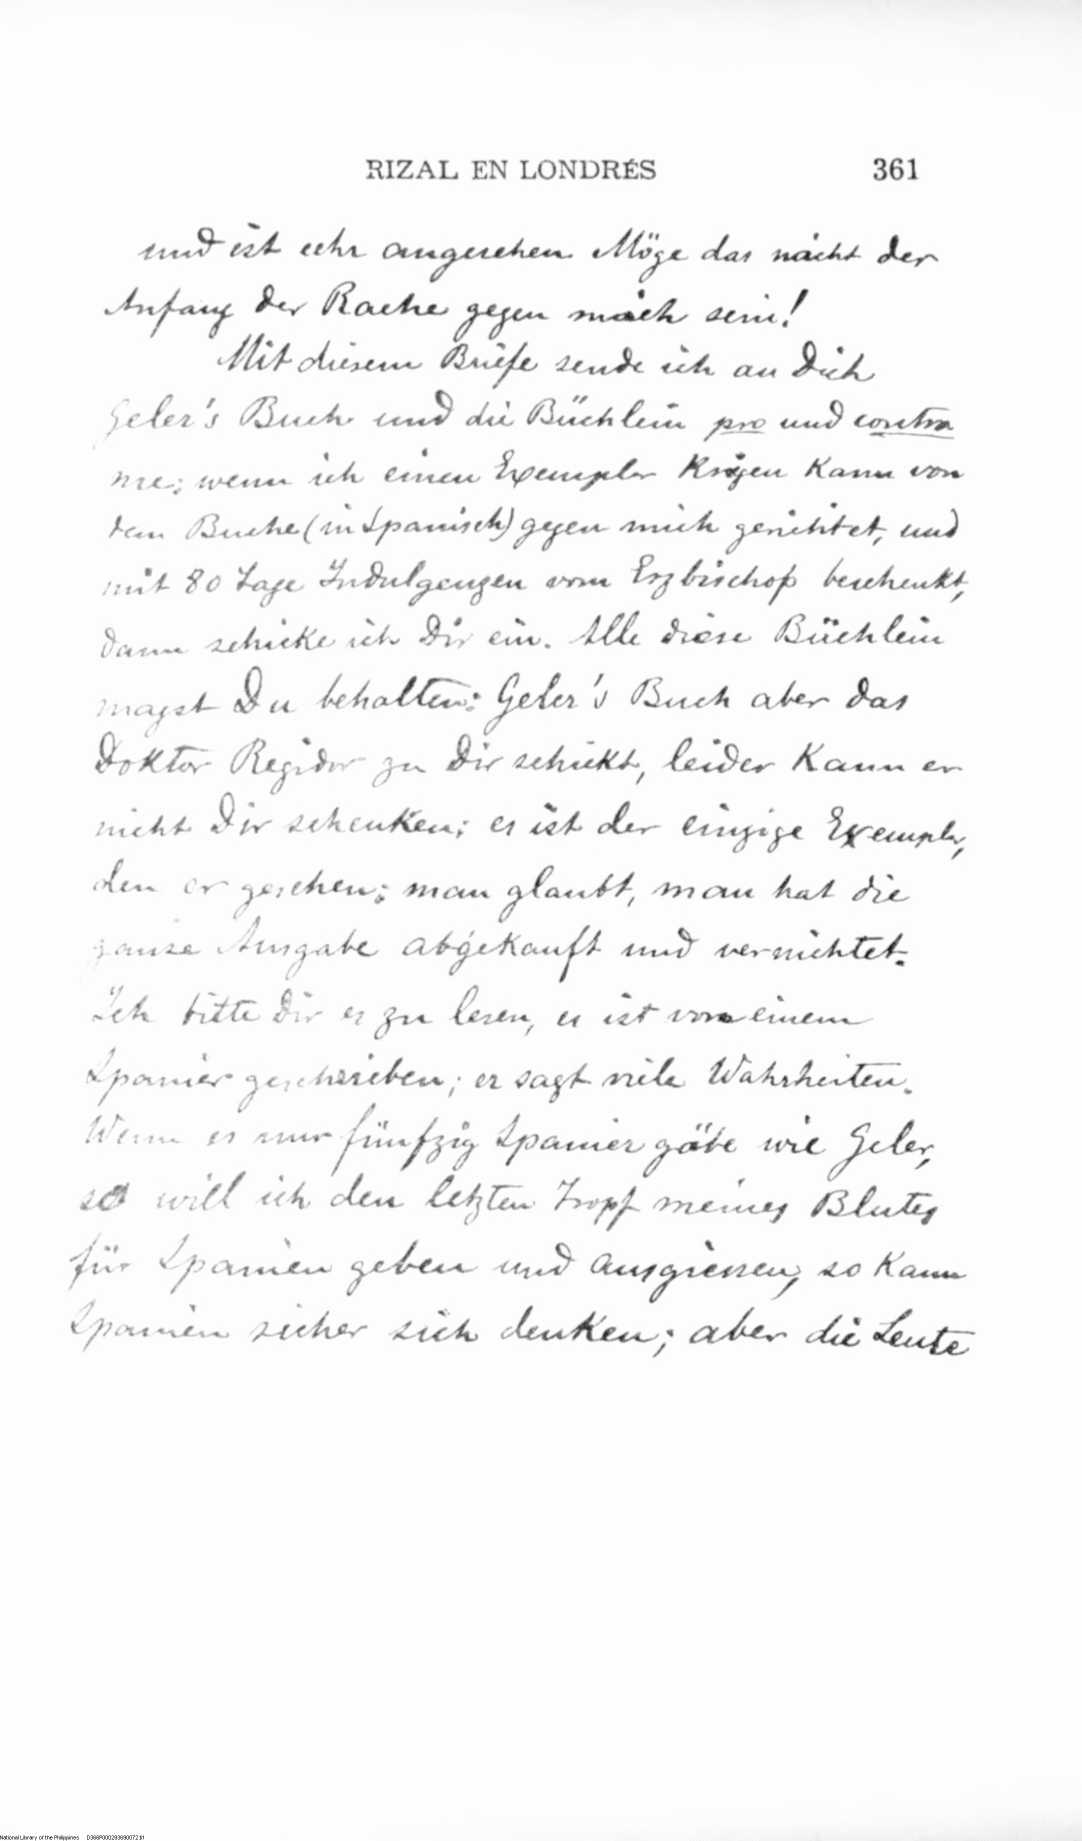 RIZAL EN LONDRÉS 361
und ist sehr angesehen. Möge das nicht der
Anfang der Rache gegen mich sein!
Mit diesem Briefe sende ich an Dich
Geler's Buch und die Büchlein pro und contra
me; wenn ich einen Exemplar krigen kann von
dem Buche (in Spanisch) gegen mich gerichtet, und
mit 80 Tage Indulgenzen vom Erzbischof beschenkt,
dann schicke ich Dir ein. Alle diese Büchlein
magst Du behalten: Geler's Buch aber das
Doktor Regidor zu Dir schickt, leider kann er
nicht Dir schenken; es ist der einzige Exemplar,
den er gesehen; man glaubt, man hat die
ganze Ausgabe abgekauft und vernichtet.
Ich bitte Dir es zu lesen, es ist von einem
Spanier geschrieben; er sagt viele Wahrheiten.
Wenn es nur fünfzig Spanier gäbe wie Geler,
so will ich den letzten Tropf meines Blutes
für Spanien geben und ausgiessen, so kann
Spanien sicher sich denken; aber die Leute
National Library of the Philippines